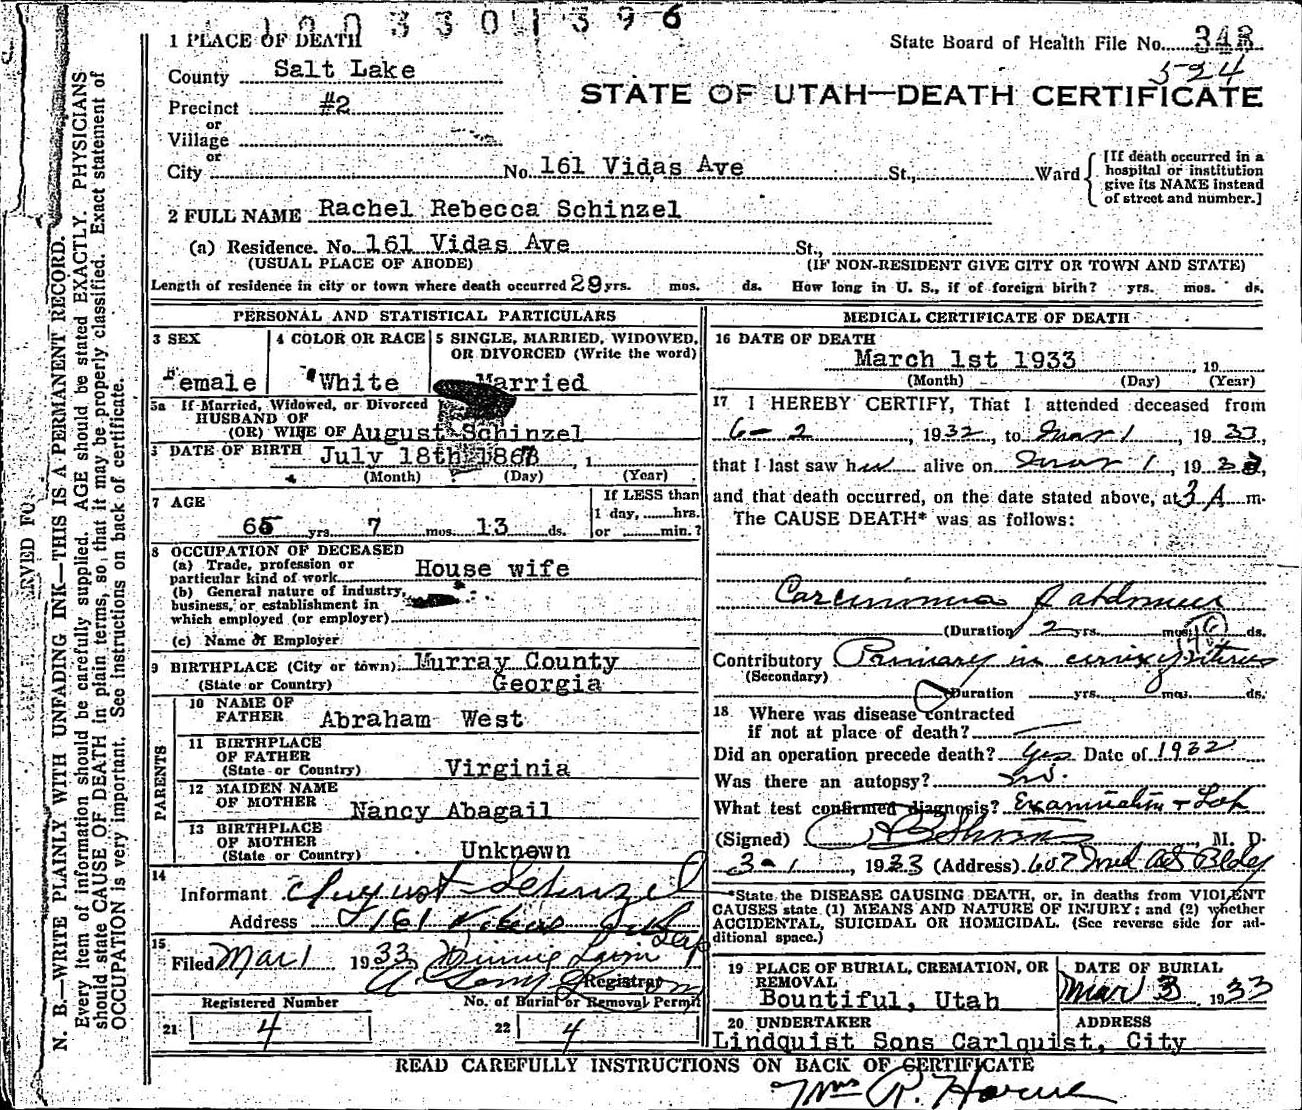 1 0 0 3 3 0 1 3 9 6
1 PLACE OF DEATH
State Board of Health File No. 343
524
County Salt Lake
STATE OF UTAH—DEATH CERTIFICATE
Precinct #2
or
Village
or
City No. 161 Vidas Ave St., Ward
[If death occurred in a
hospital or institution
give its NAME instead
of street and number.]
2 FULL NAME Rachel Rebecca Schinzel
(a) Residence. No. 161 Vidas Ave St.,
(USUAL PLACE OF ABODE) (IF NON-RESIDENT GIVE CITY OR TOWN AND STATE)
Length of residence in city or town where death occurred 29 yrs. mos. ds. How long in U. S., if of foreign birth? yrs. mos. ds.
PERSONAL AND STATISTICAL PARTICULARS
3 SEX
Female
4 COLOR OR RACE
White
5 SINGLE, MARRIED, WIDOWED,
OR DIVORCED (Write the word)
Married
5a If Married, Widowed, or Divorced
HUSBAND OF
(OR) WIFE OF August Schinzel
DATE OF BIRTH July 18th 1867 , 1
(Month) (Day) (Year)
7 AGE
65 yrs. 7 mos. 13 ds.
If LESS than
1 day, hrs.
or min.?
8 OCCUPATION OF DECEASED
(a) Trade, profession or
particular kind of work House wife
(b) General nature of industry,
business, or establishment in
which employed (or employer)
(c) Name of Employer
9 BIRTHPLACE (City or town) Murray County
(State or Country) Georgia
PARENTS
10 NAME OF
FATHER Abraham West
11 BIRTHPLACE
OF FATHER
(State or Country) Virginia
12 MAIDEN NAME
OF MOTHER Nancy Abagail
13 BIRTHPLACE
OF MOTHER
(State or Country) Unknown
14
Informant August Schinzel
Address 161 Vidas
15
Filed Mar 1 1933 Minnie
Registrar
Registered Number
21 4
No. of Burial or Removal Permit
22 4
MEDICAL CERTIFICATE OF DEATH
16 DATE OF DEATH
March 1st 1933 , 19
(Month) (Day) (Year)
17 I HEREBY CERTIFY, That I attended deceased from
6-2 , 1932, to Mar 1 , 1933,
that I last saw her alive on Mar 1 , 1933,
and that death occurred, on the date stated above, at 3 A m.
The CAUSE DEATH* was as follows:
Carcinoma of abdomen
(Duration 2 yrs. mos. ds.
Contributory Primary in cervix uterus
(Secondary)
Duration yrs. mos. ds.
18 Where was disease contracted
if not at place of death?
Did an operation precede death? Yes Date of 1932
Was there an autopsy? No.
What test confirmed diagnosis? Examination + Lab
(Signed) M. D.
3-1 , 1933 (Address) 607 Med Arts Bldg
*State the DISEASE CAUSING DEATH, or, in deaths from VIOLENT
CAUSES state (1) MEANS AND NATURE OF INJURY; and (2) whether
ACCIDENTAL, SUICIDAL OR HOMICIDAL. (See reverse side for ad-
ditional space.)
19 PLACE OF BURIAL, CREMATION, OR
REMOVAL
Bountiful, Utah
DATE OF BURIAL
Mar 3 1933
20 UNDERTAKER ADDRESS
Lindquist Sons Carlquist, City
READ CAREFULLY INSTRUCTIONS ON BACK OF CERTIFICATE
Mrs R. Horne
N. B.—WRITE PLAINLY WITH UNFADING INK—THIS IS A PERMANENT RECORD.
Every item of information should be carefully supplied. AGE should be stated EXACTLY. PHYSICIANS
should state CAUSE OF DEATH in plain terms, so that it may be properly classified. Exact statement of
OCCUPATION is very important. See instructions on back of certificate.